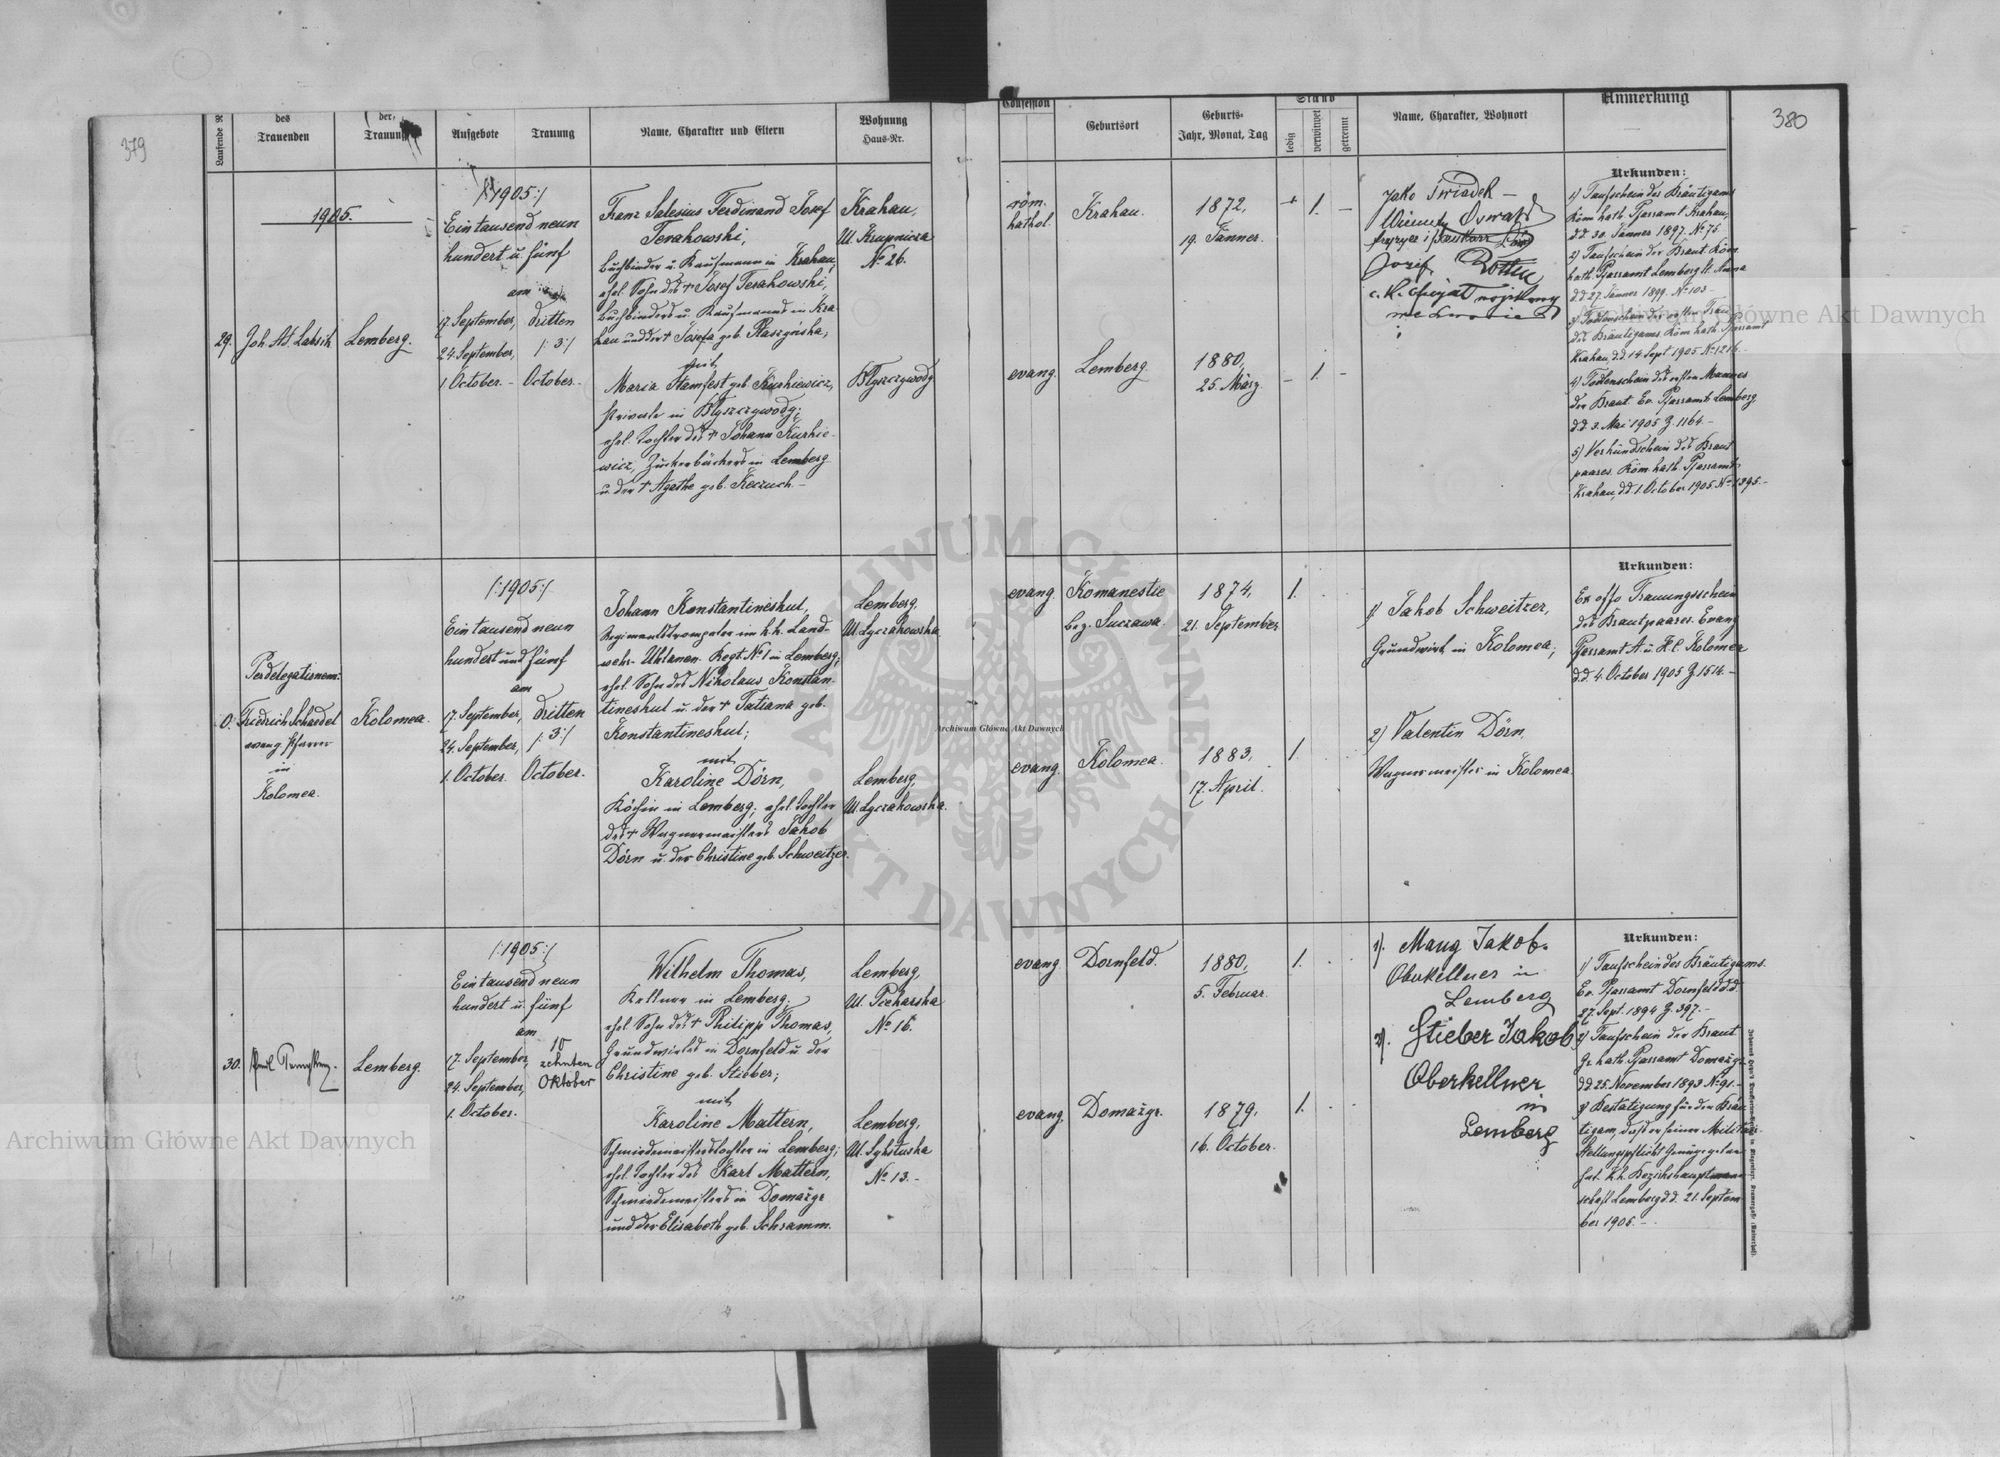 379
380
Laufende N
des
Trauenden
der
Trauung
Aufgebote
Trauung
Name, Charakter und Eltern
Wohnung
Haus-Nr.
Confession
Geburtsort
Geburts-
Jahr, Monat, Tag
Stand
ledig
verwitwet
getrennt
Name, Charakter, Wohnort
Anmerkung
1905.
29.
Lemberg.
/:1905:/
Ein tausend neun
hundert u. fünf
am
17. September,
24. September,
1. October. -
dritten
/:3:/
October. -
Franz Salesius Ferdinand Josef
Terakowski,
Buchbinder u. Kaufmann in Krakau,
ehel. Sohn des † Josef Terakowski,
Buchbinders u. Kaufmanns in Kra-
kau und der † Josefa geb.
mit
Maria Stamfest geb. Kurkiewicz,
Private in Błyszczywody;
ehel. Tochter des † Johann Kurkie-
wicz, Zuckerbäckers in Lemberg
u. der † Agathe geb. Keczuch. -
Krakau,
Ul. Krupnicza
No 26.
Błyszczywody
röm.
kathol.
Krakau.
1872,
19. Jänner.
1.
evang.
Lemberg
1880,
25. März.
1.
Jako Świadek -
Oswald
Józef
Urkunden:
1) Taufschein des Bräutigams
Röm. kath. Pfarramt Krakau,
d.d. 30. Jänner 1897. No 75. -
2) Taufschein der Braut. Röm.
kath. Pfarramt Lemberg St. Anna
d.d. 27. Jänner 1899. No 103. -
3) Todtenschein der ersten Frau
des Bräutigams. Röm. kath. Pfarramt
Krakau d.d. 14. Sept. 1905 No 1216. -
4) Todtenschein des ersten Mannes
der Braut. Ev. Pfarramt Lemberg
d.d. 3. Mai 1905 Z. 1164. -
5) Verkündschein des Braut-
paares. Röm. kath. Pfarramt
Krakau, d.d. 1. October 1905. No 1395. -
0.
Per delegationem:
Fridrich Schaedel
evang. Pfarrer
in
Kolomea.
Kolomea.
/:1905:/
Ein tausend neun
hundert und fünf
am
17. September,
24. September,
1. October.
dritten
/:3:/
October.
Johann Konstantineskul,
Regimentstrompeter im k.k. Land-
wehr- Uhlanen- Regt. No 1 in Lemberg;
ehel. Sohn des Nikolaus Konstan-
tineskul u. der † Tatiana geb.
Konstantineskul;
mit
Karoline Dörn,
Köchin in Lemberg; ehel. Tochter
des † Wagnermeisters Jakob
Dörn u. der Christine geb. Schweitzer.
Lemberg.
Ul. Łyczakowska
Lemberg,
Ul. Łyczakowska.
evang.
Komanestie
bez. Suczawa.
1874,
21. September
1.
evang.
Kolomea.
1883,
17. April.
1.
1) Jakob Schweitzer,
Grundwirt in Kolomea;
2) Valentin Dörn,
Wagnermeister in Kolomea.
Urkunden:
Ex offo Trauungsschein
des Brautpaares. Evang.
Pfarramt A. u. H.C. Kolomea
d.d. 4. October 1905 Z. 1514. -
30.
Lemberg.
/:1905:/
Ein tausend neun
hundert u. fünf
am
17. September,
24. September,
1. October.
10
zehnten
Oktober
Wilhelm Thomas,
Kellner in Lemberg;
ehel. Sohn des † Philipp Thomas,
Grundwirtes in Dornfeld u. der
Christine geb. Stieber;
mit
Karoline Mattern,
Schmiedemeisterstochter in Lemberg;
ehel. Tochter des Karl Mattern,
Schmiedemeisters in Domażyr
und der Elisabeth geb. Schramm.
Lemberg,
Ul. Piekarska
No 16.
Lemberg,
Ul. Sykstuska
No 13. -
evang.
Dornfeld.
1880,
5. Februar.
1.
evang.
Domażyr.
1879,
16. October.
1.
1). Mang Jakob.
Oberkellner in
Lemberg
2). Stieber Jakob
Oberkellner
in
Lemberg
Urkunden:
1) Taufschein des Bräutigams.
Ev. Pfarramt Dornfeld d.d.
27. Sept. 1894 Z. 397. -
2) Taufschein der Braut
Gr. kath. Pfarramt Domażyr
d.d. 25. November 1893 No 91. -
3) Bestätigung für den Bräu-
tigam, dass er seiner Militär-
Stellungspflicht Genüge gelei-
stet. K.k. Bezirkshauptmann-
schaft Lemberg d.d. 21. Septem-
ber 1905. -
Archiwum Główne Akt Dawnych
Archiwum Główne Akt Dawnych
Archiwum Główne Akt Dawnych
ARCHIWUM GŁÓWNE AKT DAWNYCH